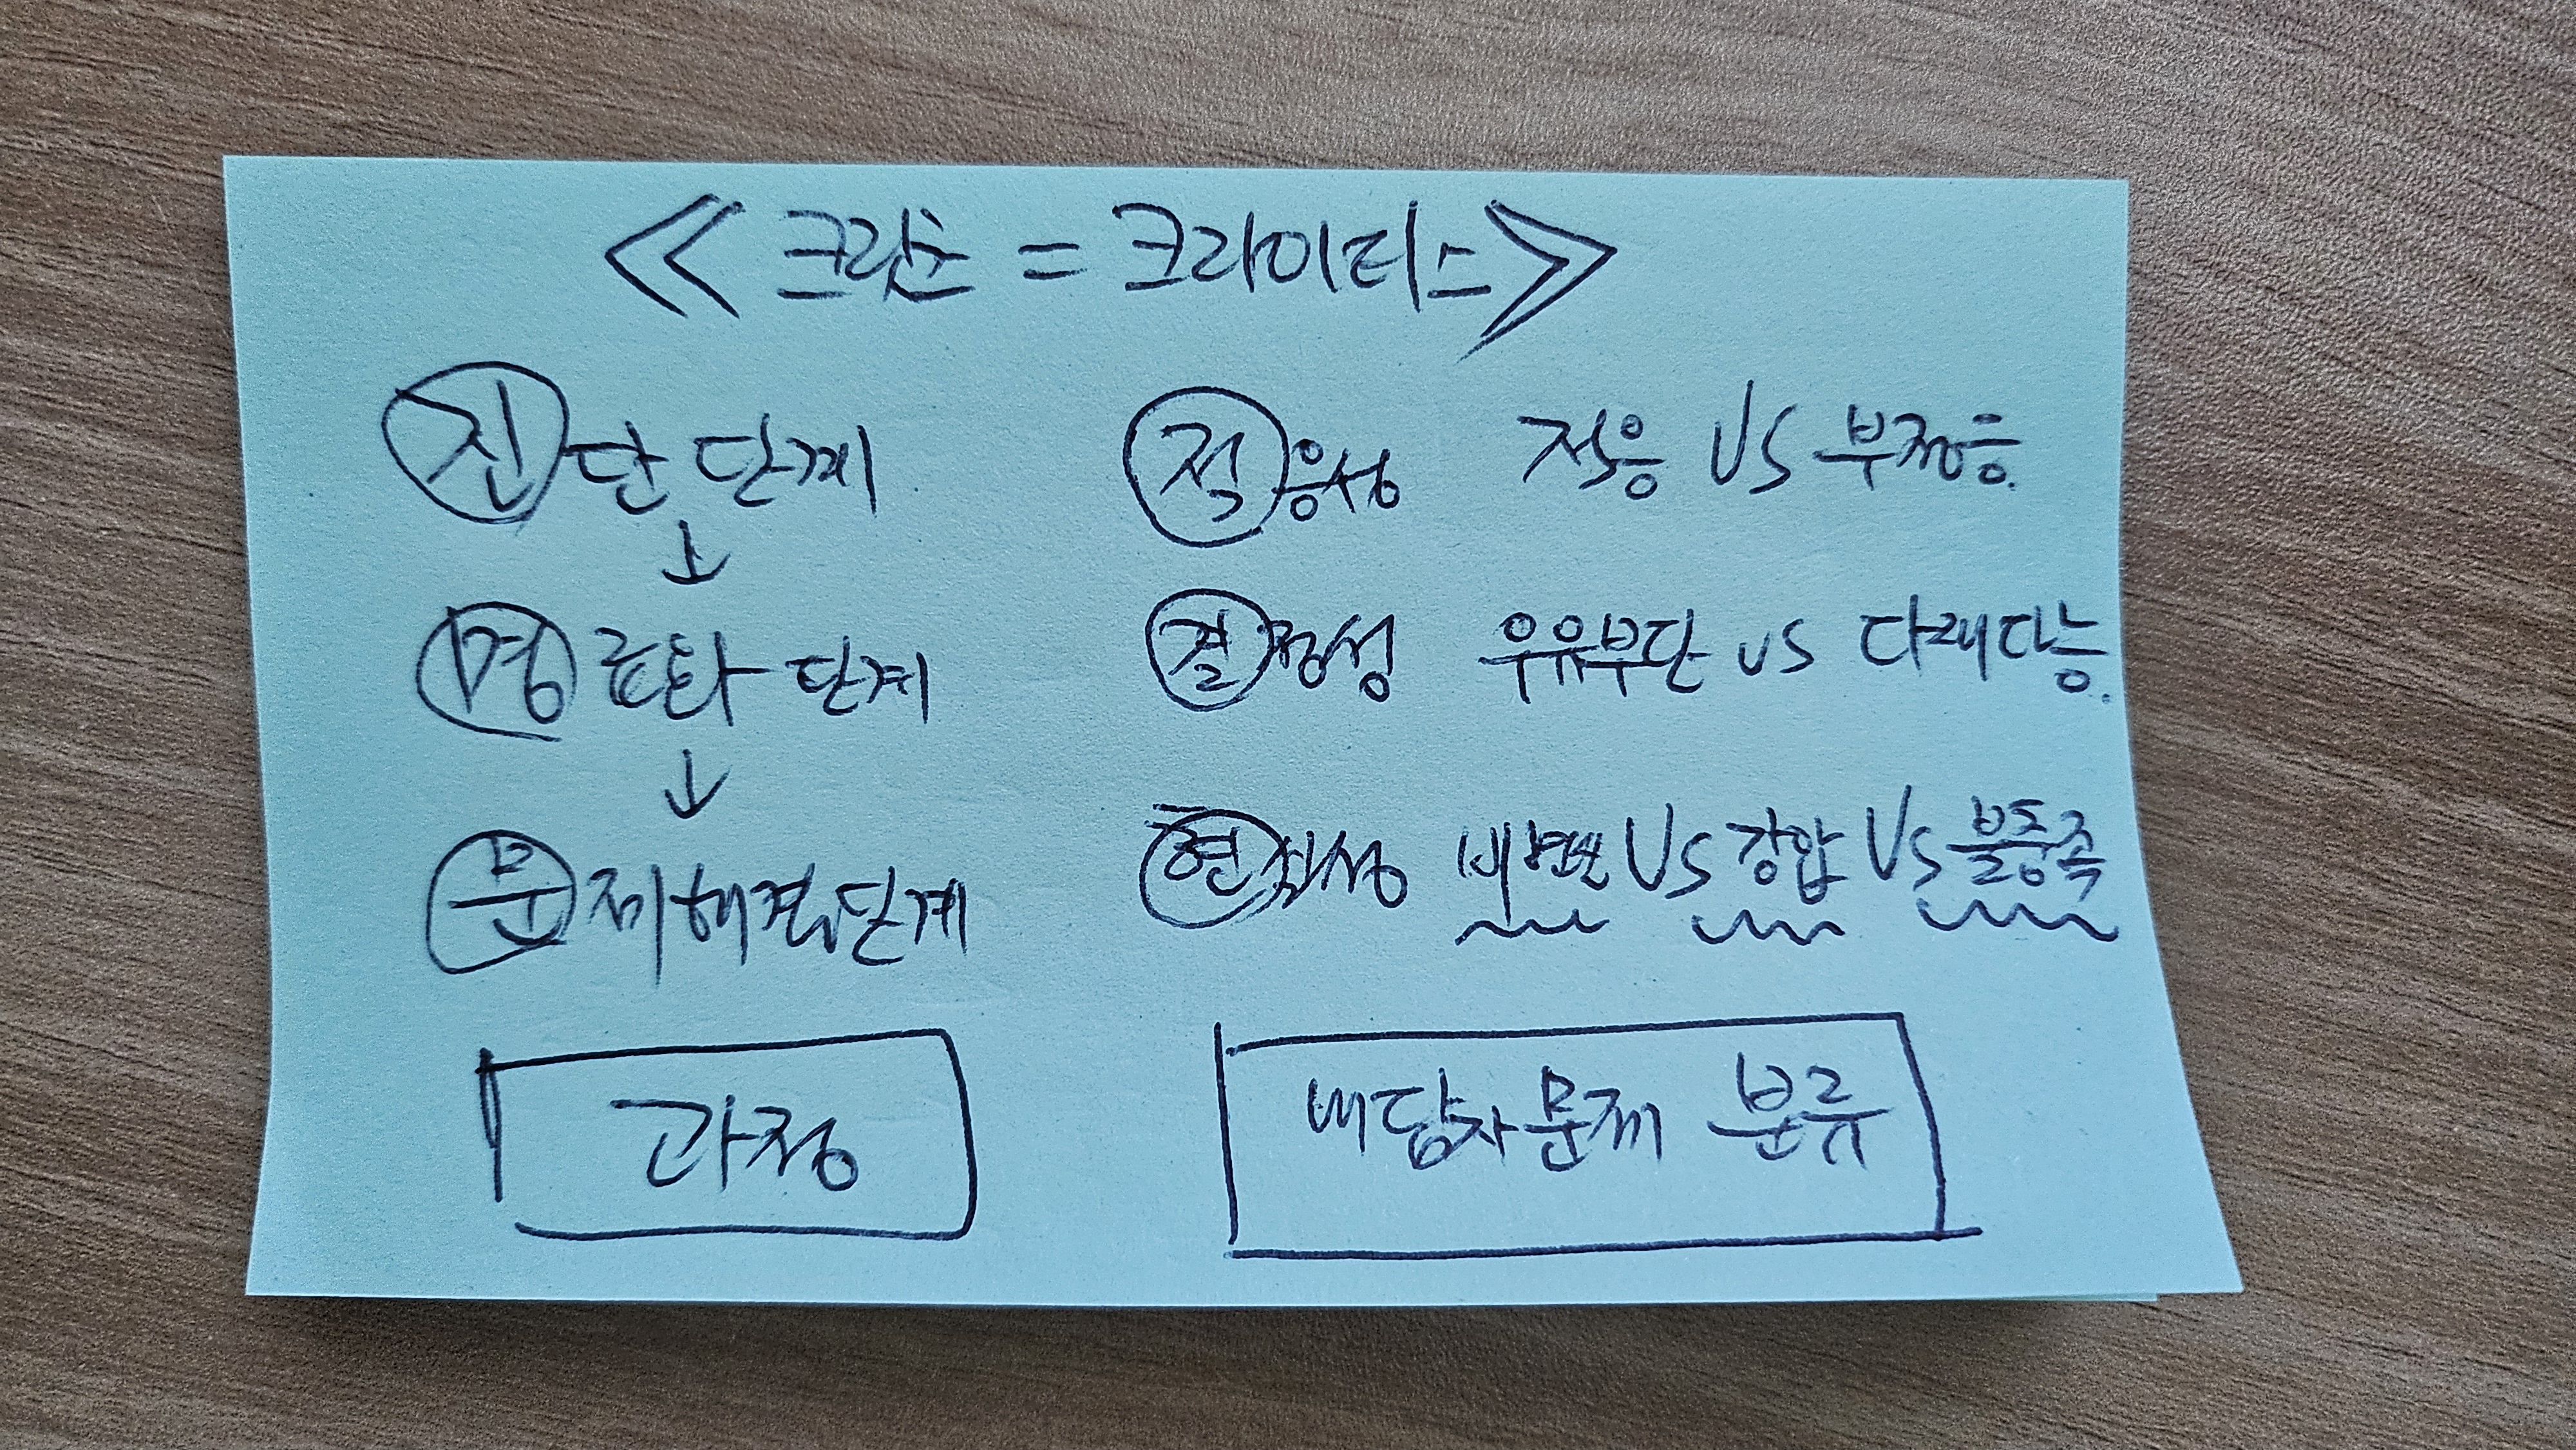 ≪ 크릿츠 = 크라이티스 ≫
진단 단계
↓
명료화 단계
↓
문제해결단계
과정
적응성 적응 VS 부적응
결정성 우유부단 VS 다재다능
현실성 비현실 VS 강압 VS 불충족
내담자 문제 분류